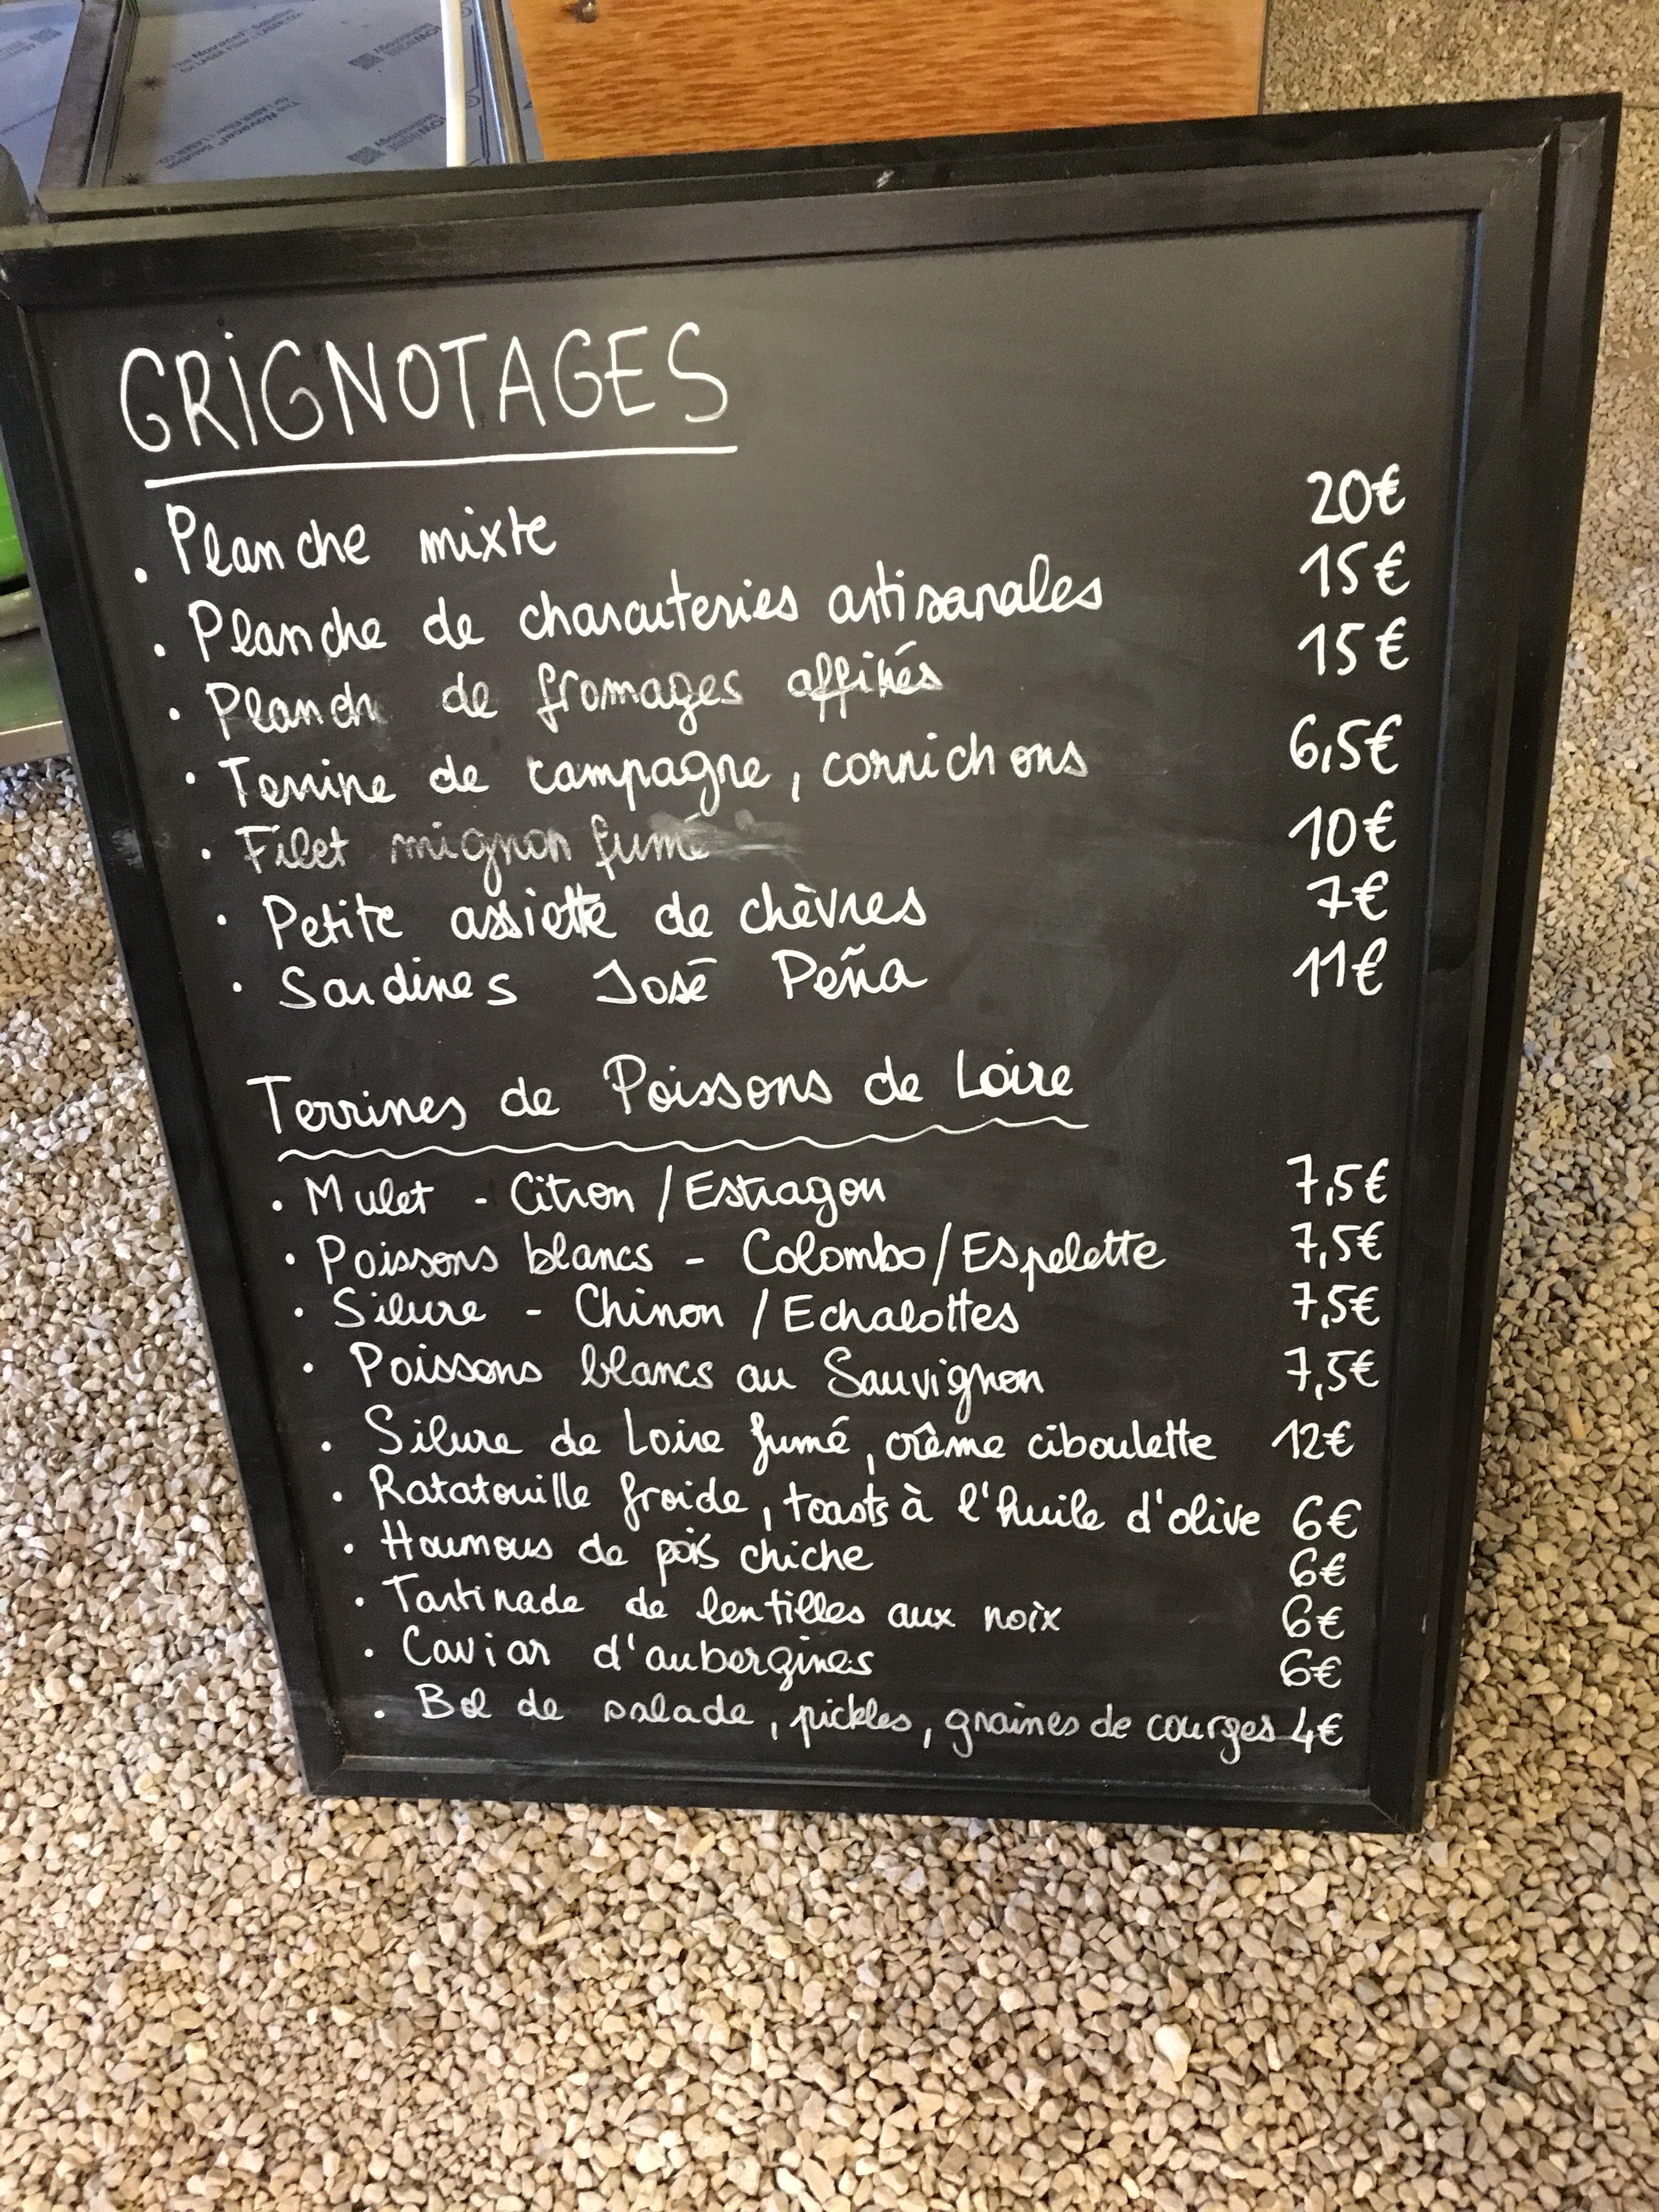 GRiGNOTAGES
. Planche mixte 20€
. Planche de charcuteries artisanales 15€
. Planche de fromages affinés 15€
. Terrine de campagne, cornichons 6,5€
. Filet mignon fumé 10€
. Petite assiette de chèvres 7€
. Sardines José Peña 11€
Terrines de Poissons de Loire
. Mulet - Citron / Estragon 7,5€
. Poissons blancs - Colombo/Espelette 7,5€
. Silure - Chinon / Echalottes 7,5€
. Poissons blancs au Sauvignon 7,5€
. Silure de Loire fumé, crème ciboulette 12€
. Ratatouille froide, toasts à l'huile d'olive 6€
. Houmous de pois chiche 6€
. Tartinade de lentilles aux noix 6€
. Caviar d'aubergines 6€
. Bol de salade, pickles, graines de courges 4€